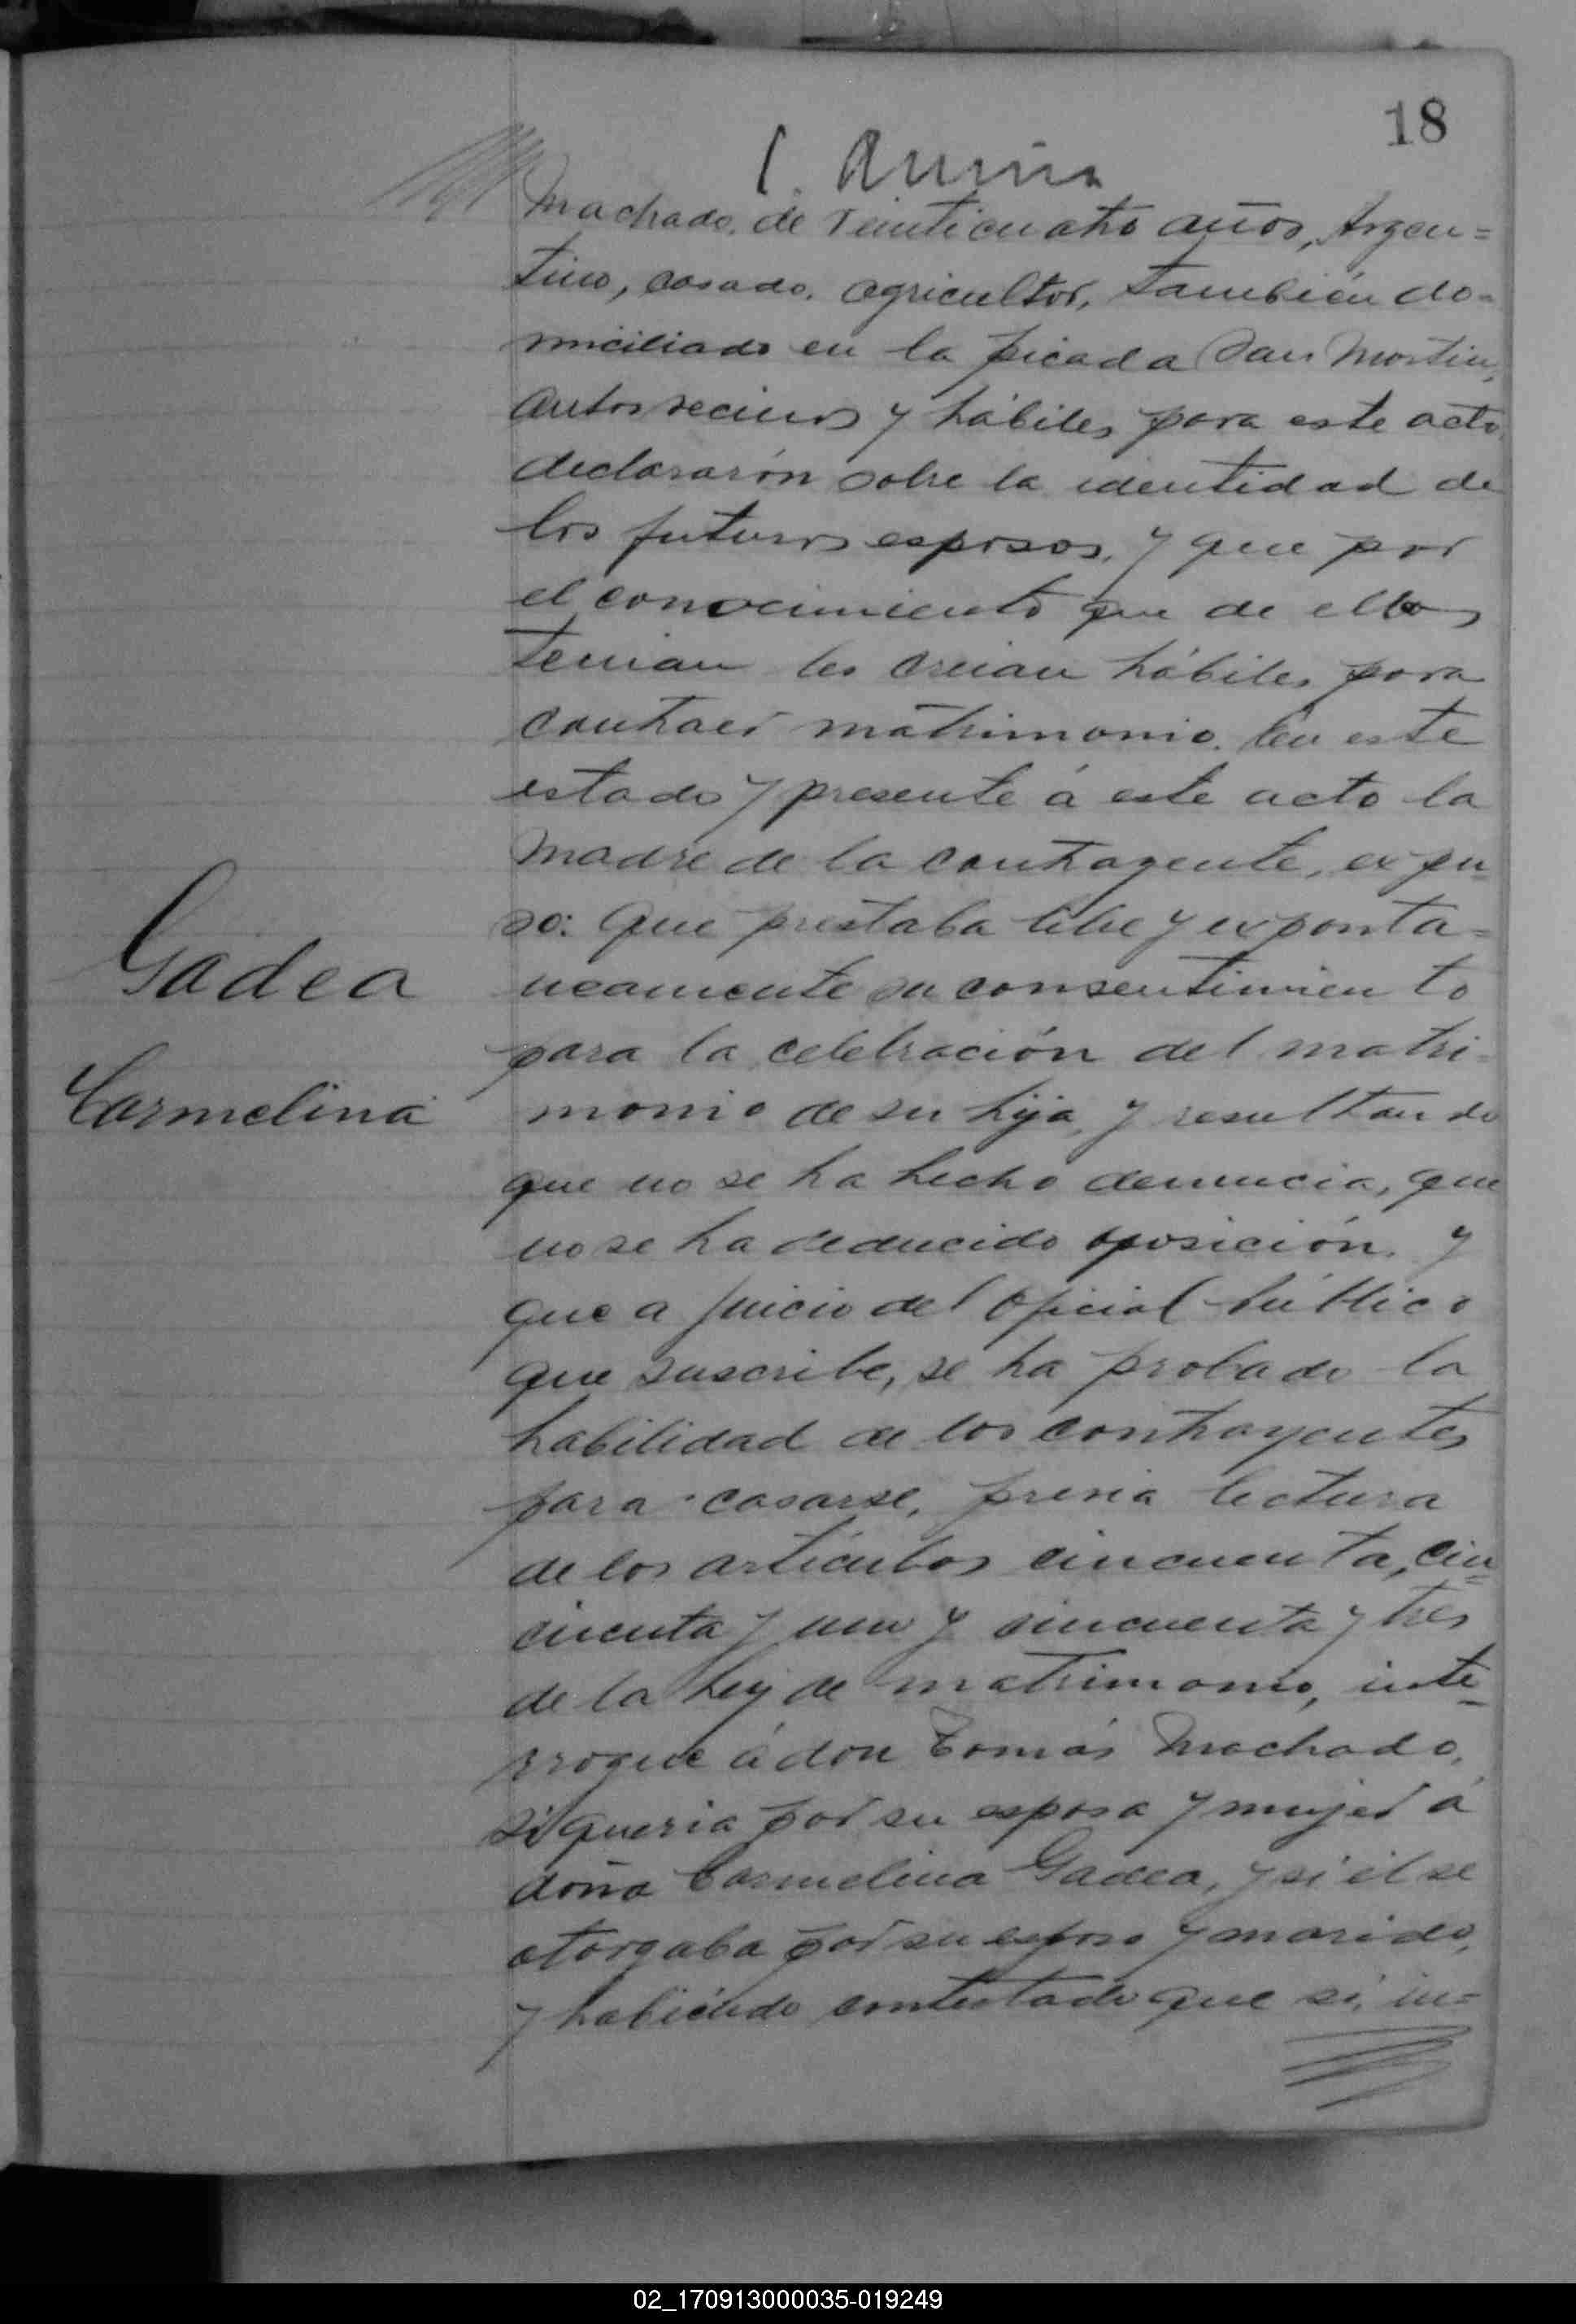 18
Machado, de veinticuatro años, Argen=
tino, casado, agricultor, también do=
miciliado en la picada San Martin,
ambos vecinos y hábiles para este acto,
declararón sobre la identidad de
los futuros esposos, y que por
el conocimiento que de ellos
tenian les creian hábiles para
contraer matrimonio. En este
estado y presente á este acto la
Madre de la contrayente, expu=
so: que prestaba libre y exponta=
neamente su consentimiento
para la celebración del matri=
monio de su hija, y resultando
que no se ha hecho denuncia, que
no se ha deducido oposición, y
que a juicio del Oficial Público
que suscribe, se ha probado la
habilidad de los contrayentes
para casarse, previa lectura
de los artículos cincuenta, cin=
cuenta y uno y cincuenta y tres
de la Ley de matrimonio, inte=
rrogué á don Tomás Machado,
si queria por su esposa y mujer á
doña Carmelina Gadea, y si él se
otorgaba por su esposo y marido,
y habiendo contestado que sí, in=
Gadea
Carmelina
02_170913000035-019249